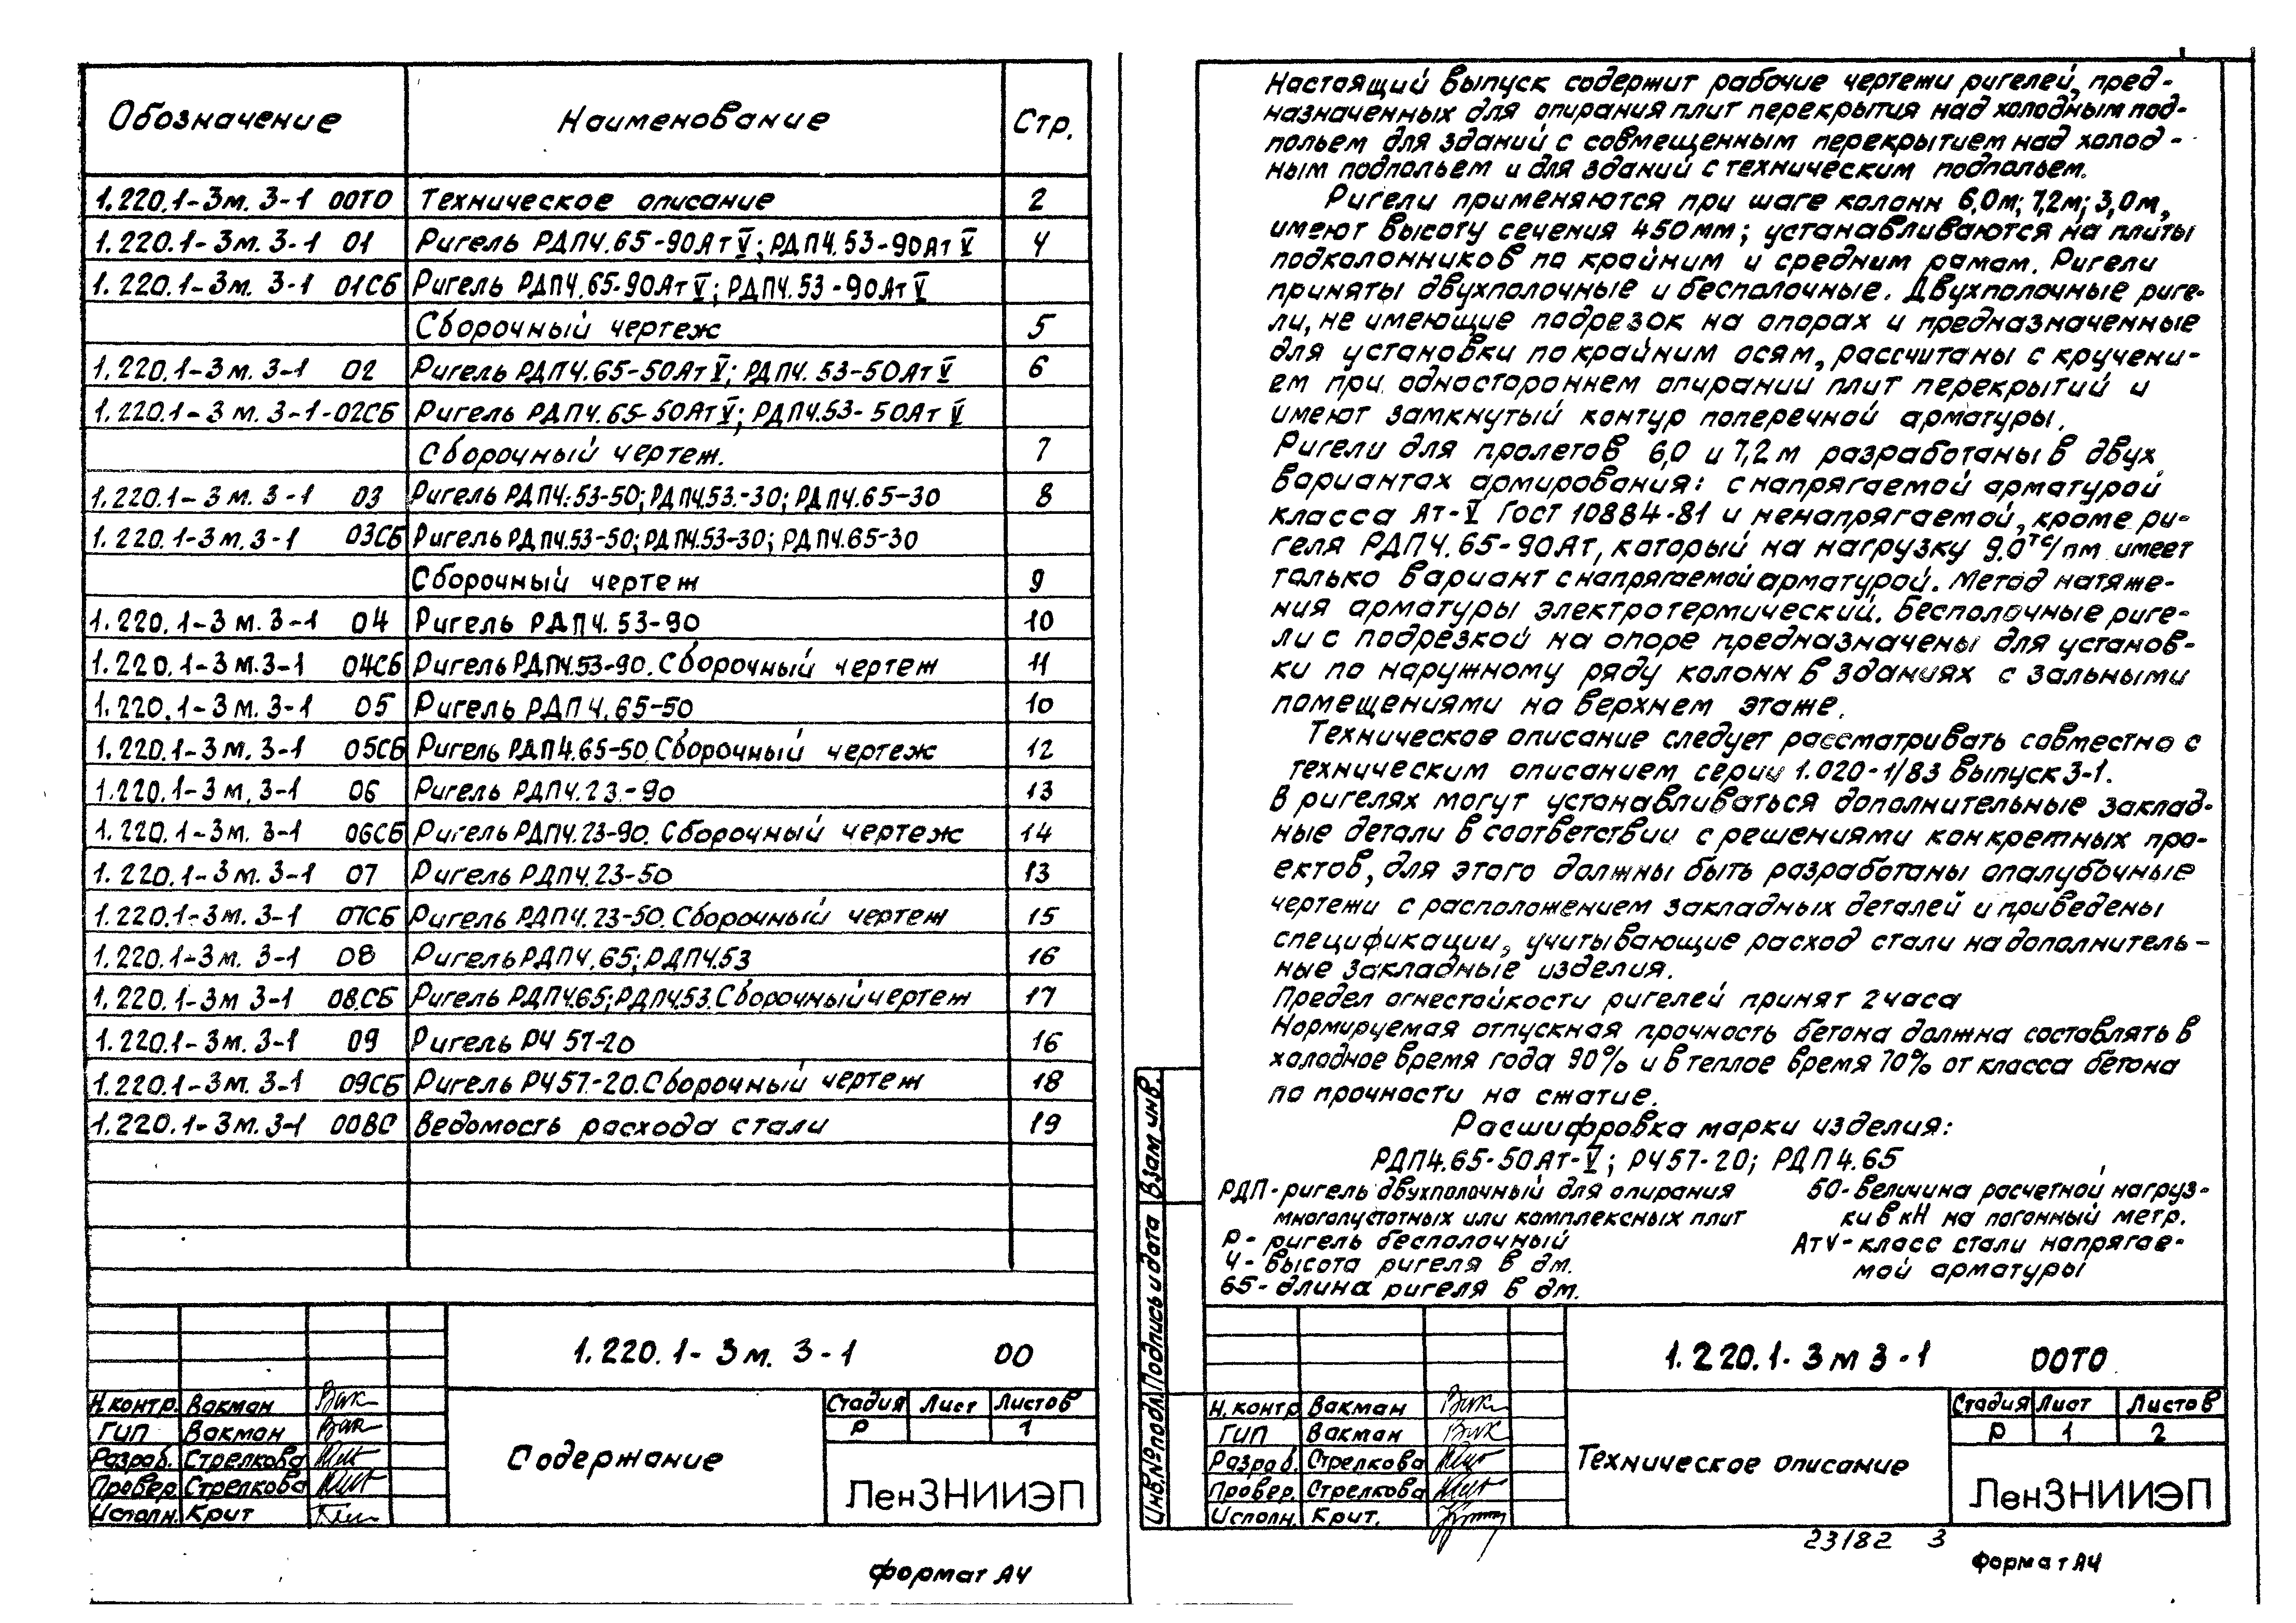 Обозначение Наименование Стр.
1.220.1-3м. 3-1 00ТО Техническое описание 2
1.220.1-3м. 3-1 01 Ригель РДП4.65-90АтV; РДП4.53-90АтV 4
1.220.1-3м. 3-1 01СБ Ригель РДП4.65-90АтV; РДП4.53-90АтV
Сборочный чертеж 5
1.220.1-3м. 3-1 02 Ригель РДП4.65-50АтV; РДП4. 53-50АтV 6
1.220.1-3м. 3-1-02СБ Ригель РДП4.65-50АтV; РДП4.53-50АтV
Сборочный чертеж. 7
1.220.1-3м. 3-1 03 Ригель РДП4.53-50; РДП4.53-30; РДП4.65-30 8
1.220.1-3м. 3-1 03СБ Ригель РДП4.53-50; РДП4.53-30; РДП4.65-30
Сборочный чертеж 9
1.220.1-3м. 3-1 04 Ригель РДП4. 53-90 10
1.220.1-3м. 3-1 04СБ Ригель РДП4.53-90. Сборочный чертеж 11
1.220.1-3м. 3-1 05 Ригель РДП4.65-50 10
1.220.1-3м. 3-1 05СБ Ригель РДП4.65-50 Сборочный чертеж 12
1.220.1-3м. 3-1 06 Ригель РДП4.23-90 13
1.220.1-3м. 3-1 06СБ Ригель РДП4.23-90. Сборочный чертеж 14
1.220.1-3м. 3-1 07 Ригель РДП4.23-50 13
1.220.1-3м. 3-1 07СБ Ригель РДП4.23-50. Сборочный чертеж 15
1.220.1-3м. 3-1 08 Ригель РДП4.65; РДП4.53 16
1.220.1-3м 3-1 08.СБ Ригель РДП4.65; РДП4.53. Сборочный чертеж 17
1.220.1-3м. 3-1 09 Ригель Р4 57-20 16
1.220.1-3м. 3-1 09СБ Ригель Р4 57-20. Сборочный чертеж 18
1.220.1-3м. 3-1 00ВС Ведомость расхода стали 19
1.220.1-3м. 3-1 00
Н.контр. Вакман
ГИП Вакман
Разраб. Стрелкова
Провер. Стрелкова
Исполн. Крит
Содержание
Стадия Лист Листов
Р 1
ЛенЗНИИЭП
формат А4
Настоящий выпуск содержит рабочие чертежи ригелей, пред-
назначенных для опирания плит перекрытия над холодным под-
польем для зданий с совмещенным перекрытием над холод-
ным подпольем и для зданий с техническим подпольем.
Ригели применяются при шаге колонн 6,0м; 7,2м; 3,0м,
имеют высоту сечения 450мм; устанавливаются на плиты
подколонников по крайним и средним рамам. Ригели
приняты двухполочные и бесполочные. Двухполочные риге-
ли, не имеющие подрезок на опорах и предназначенные
для установки по крайним осям, рассчитаны с кручени-
ем при одностороннем опирании плит перекрытий и
имеют замкнутый контур поперечной арматуры.
Ригели для пролетов 6,0 и 7,2м разработаны в двух
вариантах армирования: с напрягаемой арматурой
класса Ат-V ГОСТ 10884-81 и ненапрягаемой, кроме ри-
геля РДП4.65-90Ат, который на нагрузку 9.0тс/пм имеет
только вариант с напрягаемой арматурой. Метод натяже-
ния арматуры электротермический. Бесполочные риге-
ли с подрезкой на опоре предназначены для установ-
ки по наружному ряду колонн в зданиях с зальными
помещениями на верхнем этаже.
Техническое описание следует рассматривать совместно с
техническим описанием серии 1.020-1/83 выпуск 3-1.
В ригелях могут устанавливаться дополнительные заклад-
ные детали в соответствии с решениями конкретных про-
ектов, для этого должны быть разработаны опалубочные
чертежи с расположением закладных деталей и приведены
спецификации, учитывающие расход стали на дополнитель-
ные закладные изделия.
Предел огнестойкости ригелей принят 2 часа
Нормируемая отпускная прочность бетона должна составлять в
холодное время года 90% и в теплое время 70% от класса бетона
по прочности на сжатие.
Расшифровка марки изделия:
РДП4.65-50Ат-V; Р4 57-20; РДП4.65
РДП-ригель двухполочный для опирания
многопустотных или комплексных плит
Р- ригель бесполочный
4- высота ригеля в дм.
65-длина ригеля в дм.
50-величина расчетной нагруз-
ки в кН на погонный метр.
АтV-класс стали напрягае-
мой арматуры
Взам инв.
Подпись и дата
Инв.№подл.
1.220.1-3м 3-1 00ТО
Н.контр Вакман
ГИП Вакман
Разраб. Стрелкова
Провер. Стрелкова
Исполн. Крит.
Техническое описание
Стадия Лист Листов
Р 1 2
ЛенЗНИИЭП
23182 3
формат А4